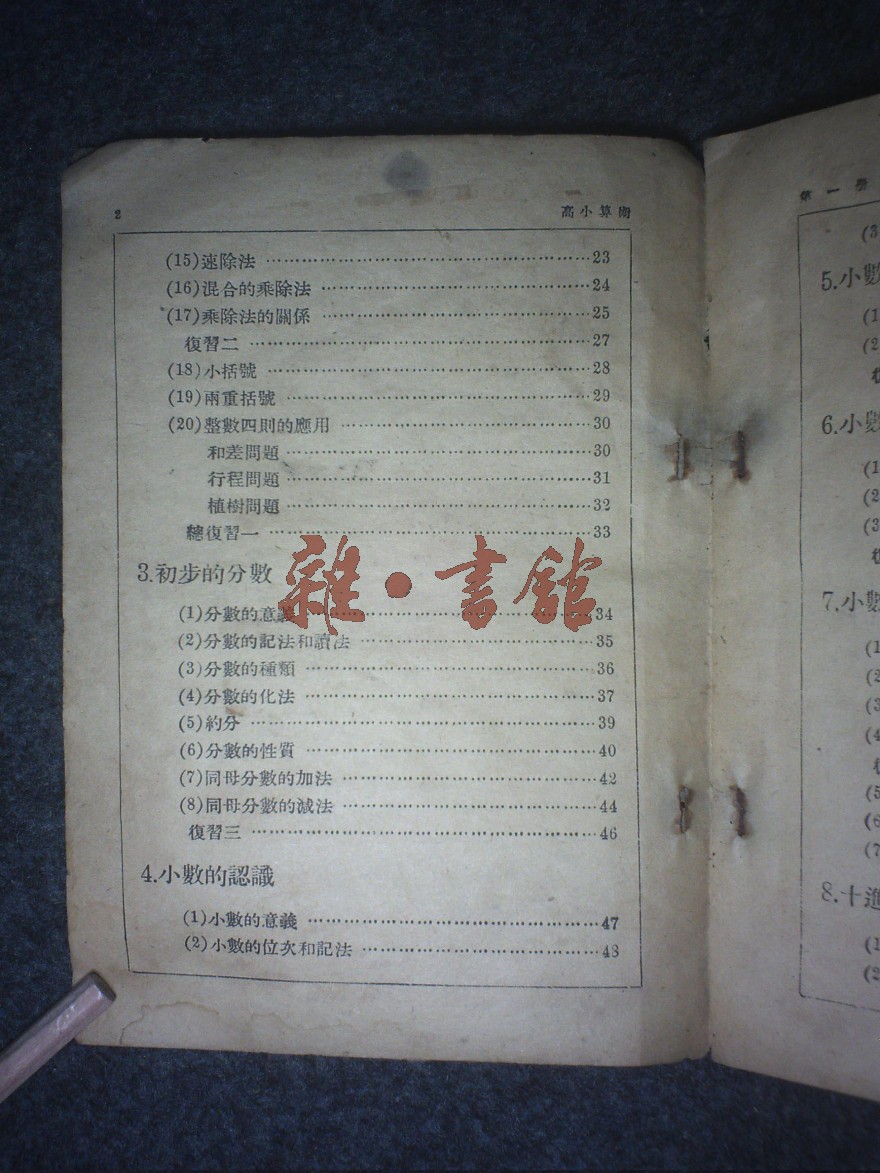 2 高小算術
(15)速除法 ……23
(16)混合的乘除法 ……24
(17)乘除法的關係 ……25
復習二 ……27
(18)小括號 ……28
(19)兩重括號 ……29
(20)整數四則的應用 ……30
和差問題 ……30
行程問題 ……31
植樹問題 ……32
總復習一 ……33
3.初步的分數
(1)分數的意義 ……34
(2)分數的記法和讀法 ……35
(3)分數的種類 ……36
(4)分數的化法 ……37
(5)約分 ……39
(6)分數的性質 ……40
(7)同母分數的加法 ……42
(8)同母分數的減法 ……44
復習三 ……46
4.小數的認識
(1)小數的意義 ……47
(2)小數的位次和記法 ……48
雜·書館
第一
(3
5.小數
(1
(2
6.小數
(1
(2
(3
7.小數
(1
(2
(3
(4
(5
(6
(7
8.十進
(1
(2